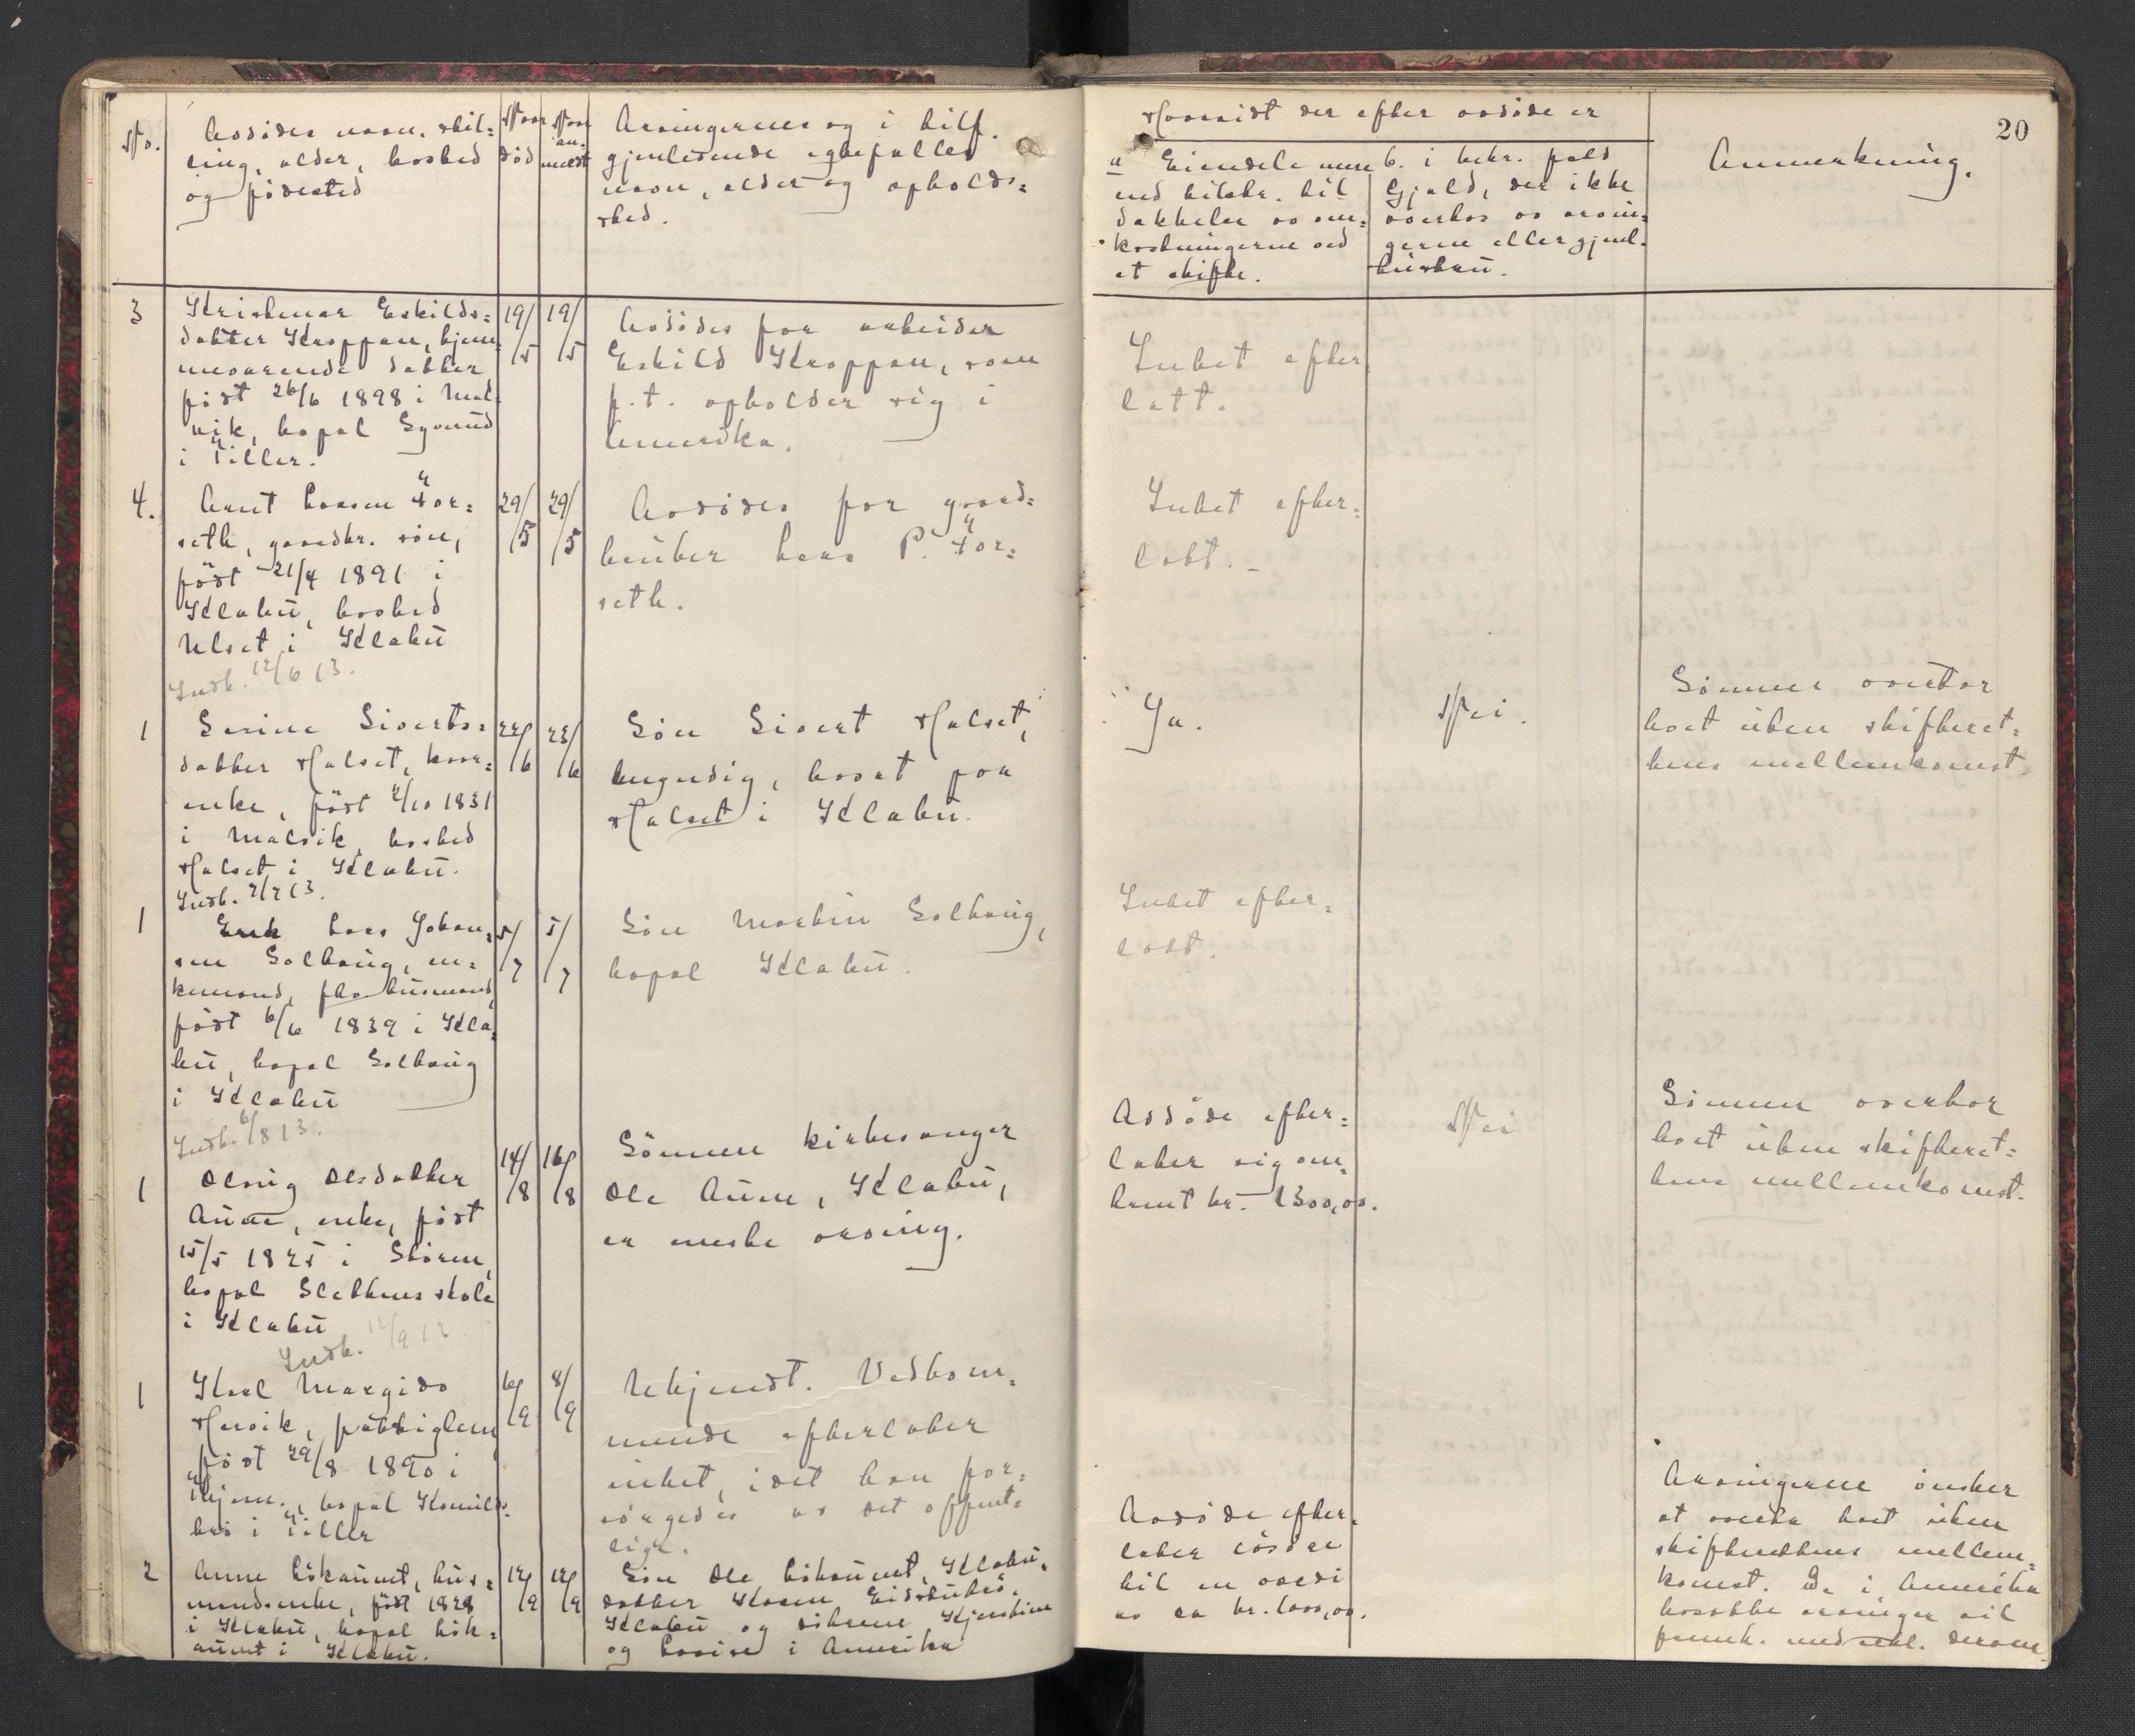 No.
Avdödes navn, stil=
ling, alder, bosted
og födested
Naar
död
Naar
an=
meldt
Arvingernes og i tilf.
gjenlevende egtefælles
navn, alder og opholds=
sted.
Hvorvidt der efter avdöde er
a Eiendele nem
ved tilstr. til
dækkelse av om=
kostningerne ved
et skifte.
b. i bekr. fald
Gjæld, der ikke
overtas av arvin=
gerne eller gjenl.
Anmerkning.
20
3
Kristense Eskilds=
datter Kroppan, hjem=
meværende datter
födt 26/6 1898 i Mal=
vik, bopæl
i Tiller.
19/5
19/5
Avdödes far arbeider
Eskild Kroppan, som
p.t. opholder sig i
Amerika.
Intet efter
latt.
4.
Arnt Larsen For=
seth, gaardbr. sön,
födt 21/4 1891 i
Klæbu, bosted
Ulset i Klæbu
Indb. 12/6 13.
29/5
29/5
Avdödes far gaard=
bruker Lars P. For=
seth.
Intet efter=
latt. -
1
Serine Siverts=
datter Halset, kaar=
enke, födt 2/10 1831
i Malvik, bosted
Halset i Klæbu.
Indb. 2/7 13.
22/6
23/6
Sön Sivert Halset,
myndig, bosat paa
Halset i Klæbu.
Ja.
Nei.
Sönnen overtar
boet uten skifteret=
tens mellemkomst.
1
Lars Johan=
sen Solhaug, en=
kemand, fhv. husmand,
födt 6/6 1839 i Klæ=
bu, bopæl Solhaug
i Klæbu
Indb. 6/8 13.
5/7
5/7
Sön Martin Solhaug,
bopæl Klæbu.
Intet efter=
latt.
1
Olsdatter
Aune, enke, födt
15/5 1825 i Stören,
bopæl Sletten skole
i Klæbu
Indb. 12/9 13
14/8
16/8
Sönnen kirkesanger
Ole Aune, Klæbu,
er eneste arving.
Avdöde efter=
later sig om=
trent kr. 1300,00.
Nei
Sönnen overtar
boet uten skifteret=
tens mellemkomst.
1
Karl Margido
födt 29/8 1890 i
bopæl
i Tiller
6/9
8/9
Ukjendt. Vedkom=
mende efterlater
intet, idet han for=
sörgedes av det offent=
lige.
2
Anne Lökaunet, hus=
mandsenke, födt 1828
i Klæbu, bopæl Lök=
aunet i Klæbu.
12/9
12/9
Sön Ole Lökaunet, Klæbu,
datter Karen
Klæbu og Kjerstine
og Lovise i Amerika
Avdöde efter=
later lösöre
til en værdi
av ca kr. 1000,00.
Arvingerne önsker
at overta boet uten
skifterettens mellem=
komst. De i Amerika
bosatte arvinger vil
fremk. med erkl. derom.